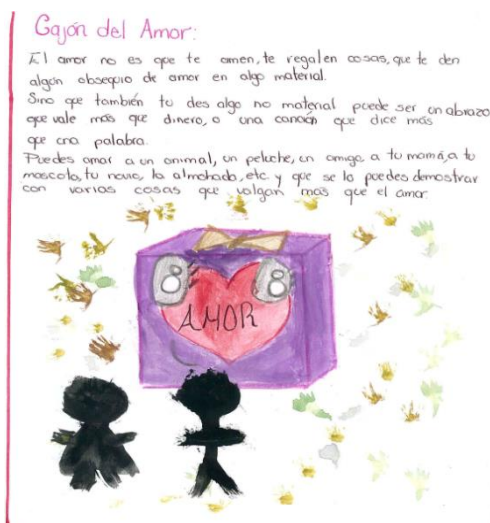 Cajón del Amor:
El amor no es que te amen, te regalen cosas, que te den
algún obsequio de amor en algo material.
Sino que también tu des algo no material puede ser un abrazo
que vale más que dinero, o una canción que dice más
que una palabra.
Puedes amar a un animal, un peluche, un amigo, a tu mamá, a tu
mascota, tu novio, la almohada, etc y que se lo puedes demostrar
con varias cosas que valgan mas que el amar.
AMOR